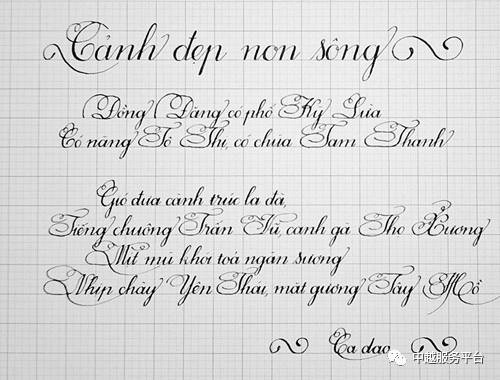 Cảnh đẹp non sông
Đồng Đăng có phố Kỳ Lừa
Có nàng Tô Thị, có chùa Tam Thanh
Gió đưa cành trúc la đà,
Tiếng chuông Trấn Vũ, canh gà Thọ Xương
Mịt mù khói toả ngàn sương
Nhịp chày Yên Thái, mặt gương Tây Hồ
Ca dao
中越服务平台